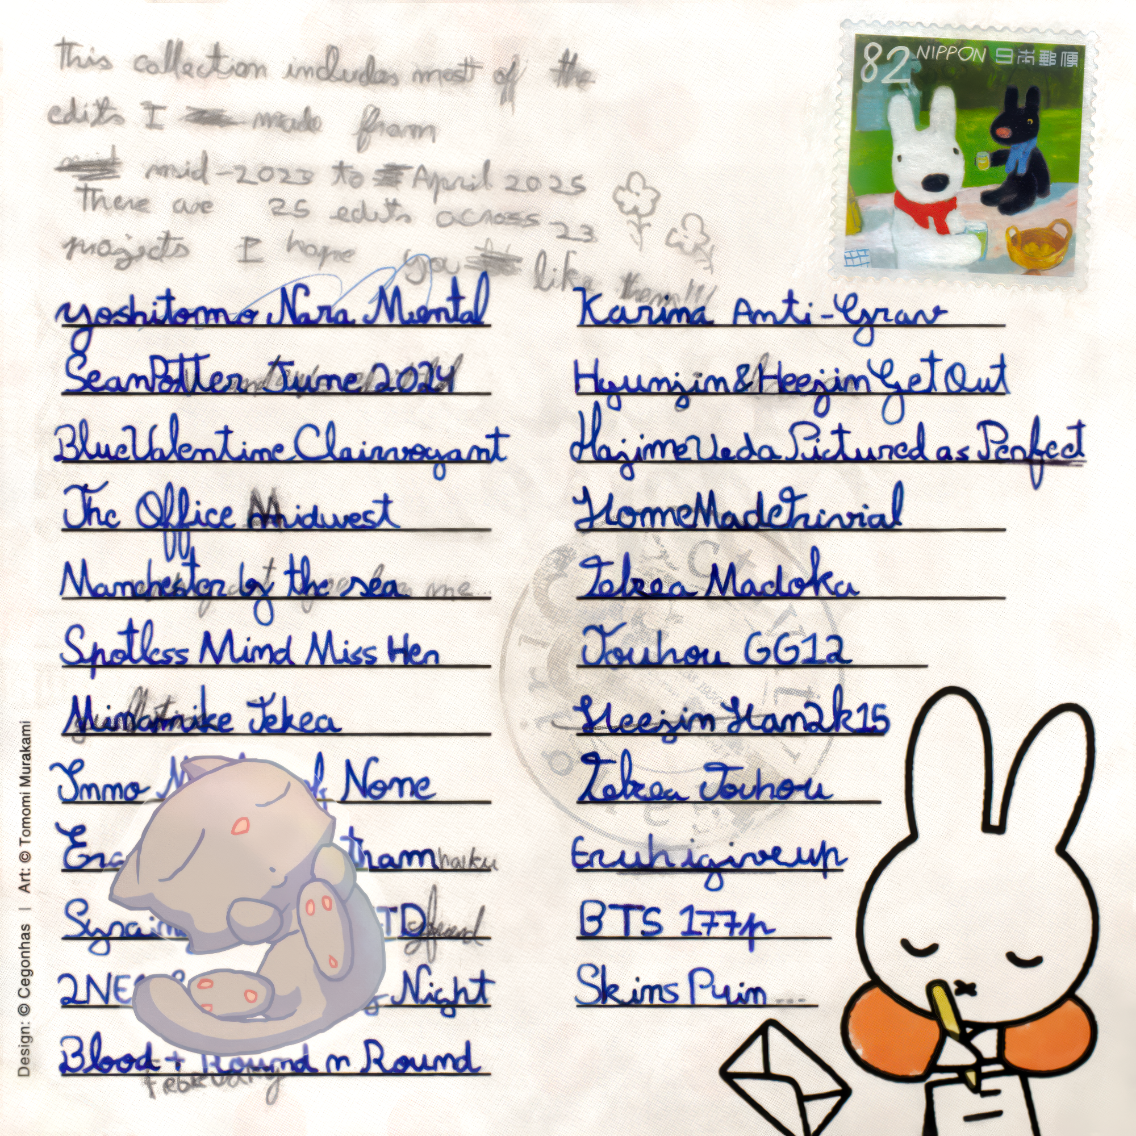 This collection includes most of the
edits I made from
mid-2023 to April 2025
There are 25 edits across 23
projects I hope you like them!!!
82 NIPPON 日本郵便
yoshitomo Nara Mental
SeanPotter June 2024
BlueValentine Clairvoyant
The Office Midwest
Manchester by the sea
Spotless Mind Miss Her
Minamike Tekea
Immo None
tham haiku
TD
2NE Night
Blood + Round n Round
February
Karina Anti-Grav
Hyunjin&Heejin Get Out
Hajime Ueda Pictured as Perfect
HomeMadeTrivial
Tekea Madoka
Touhou GG12
Heejin Han2k15
Tekea Touhou
Eruhigiveup
BTS 177p
Skins Prin...
Design: © Cegonhas | Art: © Tomomi Murakami